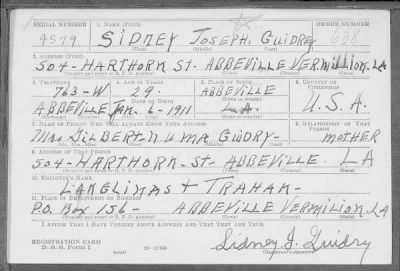 SERIAL NUMBER 1. NAME (Print) ORDER NUMBER
4579 SIDNEY JOSEPH. GUIDRY 638
(First) (Middle) (Last)
2. ADDRESS (Print)
504-HARTHORN ST- ABBEVILLE VERMILLION. LA
(Number and street or R. F. D. number) (Town) (County) (State)
3. TELEPHONE 4. AGE IN YEARS 5. PLACE OF BIRTH 6. COUNTRY OF CITIZENSHIP
763-W 29. ABBEVILLE
DATE OF BIRTH (Town or county)
ABBEVILLE JAN. 6-1911 LA. U.S.A.
(Exchange) (Mo.) (Day) (Yr.) (State or country)
7. NAME OF PERSON WHO WILL ALWAYS KNOW YOUR ADDRESS 8. RELATIONSHIP OF THAT PERSON
MRS GILBERT-NUMA GUIDRY- MOTHER
(Mr., Mrs., Miss) (First) (Middle) (Last)
9. ADDRESS OF THAT PERSON
504-HARTHORN-ST- ABBEVILLE. LA
(Number and street or R. F. D. number) (Town) (County) (State)
10. EMPLOYER'S NAME
LANGLINAS + TRAHAN-
11. PLACE OF EMPLOYMENT OR BUSINESS
P.O. BOX 156- ABBEVILLE VERMILION. LA
(Number and street or R. F. D. number) (Town) (County) (State)
I AFFIRM THAT I HAVE VERIFIED ABOVE ANSWERS AND THAT THEY ARE TRUE.
REGISTRATION CARD
D. S. S. Form 1 (over) 16-17105 Sidney J. Guidry
(Registrant's signature)